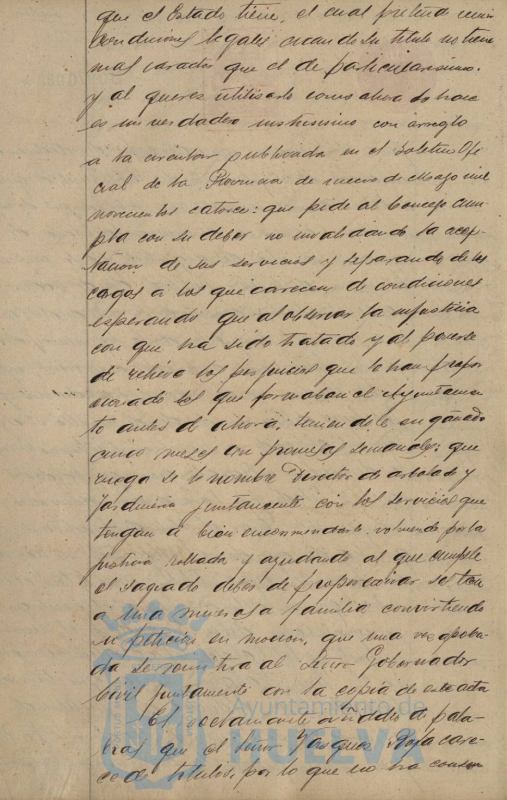 que el Estado tiene, el cual preteria reunir
condiciones legales cuando su titulo no tiene
mas caracter que el de particularisimo.
y al querer utilizarlo como ahora lo hace
es un verdadero instrusismo con arreglo
a la circular publicada en el Boletin Ofi
cial de la Provincia de nueve de Mayo mil
novecientos catorce: que pide al Concejo cum
pla con su deber no invalidando la acep
tacion de sus servicios y separando de los
cargos a los que carecen de condiciones
esperando que al observar la injusticia
con que ha sido tratado y al ponerse
de relieve los perjuicios que le han propor
cionado los que formaban el Ayuntamien
to antes del ahora, teniendole engañado
cinco meses con promesas semanales: que
ruega se le nombre Director de arbolado y
Jardineria juntamente con los servicios que
tengan a bien encomendarle, volviendo por la
justicia hollada y ayudando al que cumple
el sagrado deber de proporcionar
a una numerosa familia convirtiendo
su peticion en mocion, que una vez aproba-
da se remitira al Señor Gobernador
Civil juntamente con la copia de este acta
El reclamante añade de pala-
bras que el Señor Vazquez Roja care-
ce de titulos, por lo que no ha
Ayuntamiento de
HUELVA